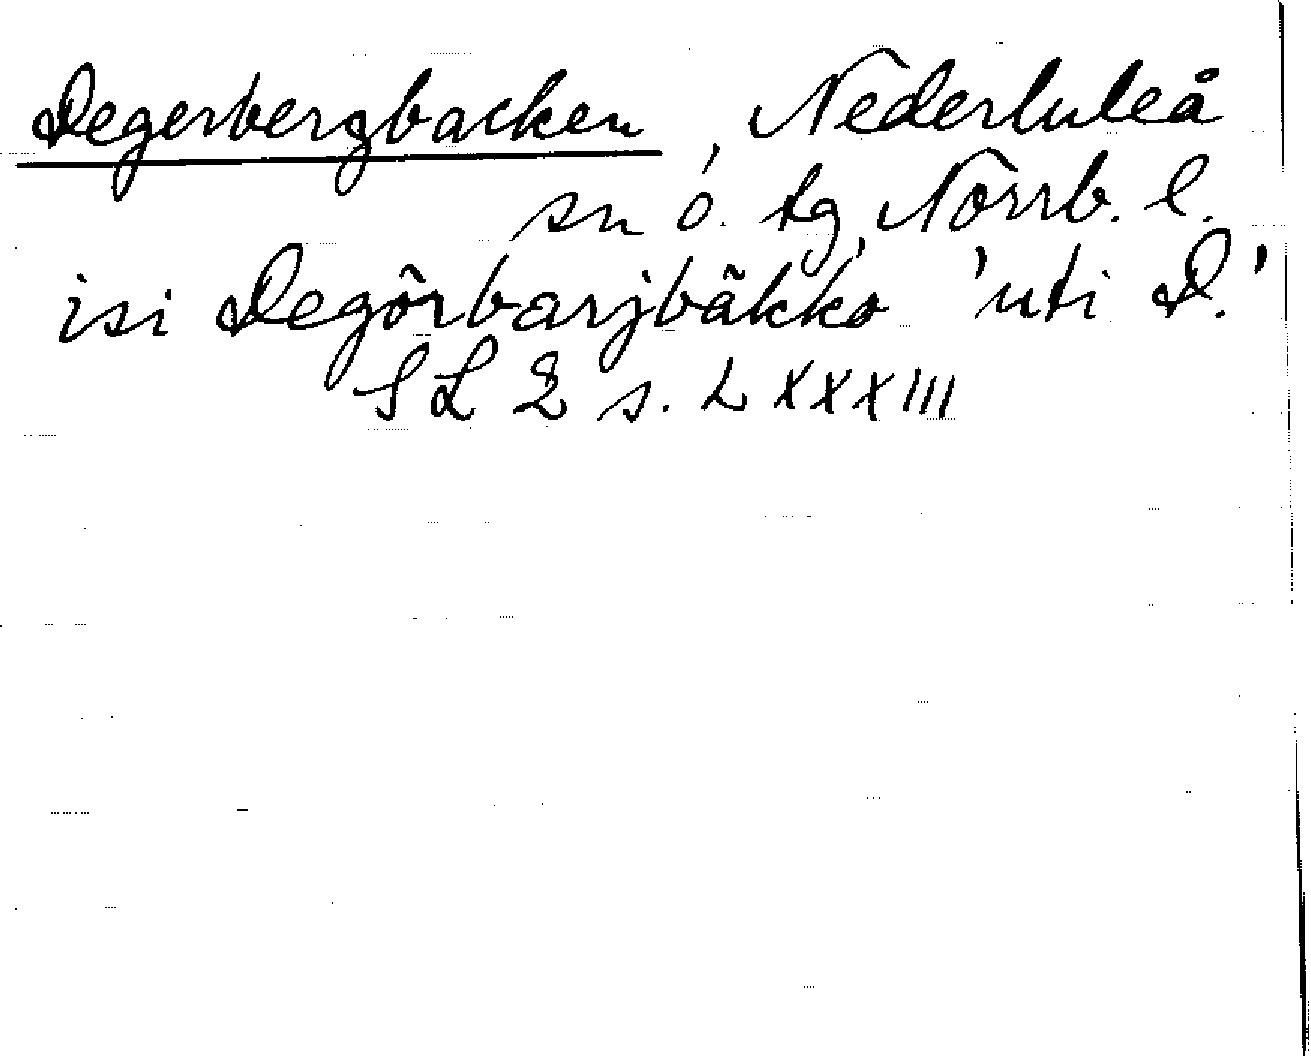 Degerbergbacken, Nederluleå
sn o. tg, Norrb. l.
isi Degôrbarjbäkko 'uti D.'
SL 2 s. LXXXIII